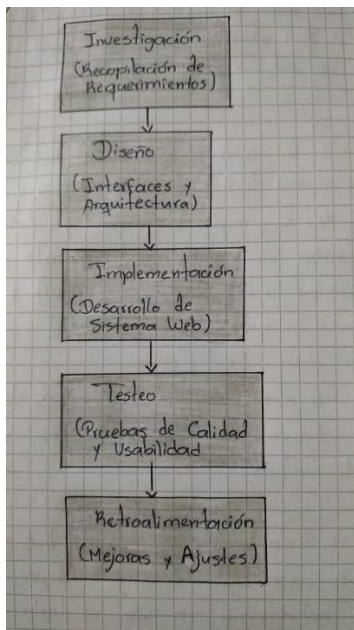 Investigación
(Recopilación de
Requerimientos)
Diseño
(Interfaces y
Arquitectura)
Implementación
(Desarrollo de
Sistema Web)
Testeo
(Pruebas de Calidad
y Usabilidad
Retroalimentación
(Mejoras y Ajustes)